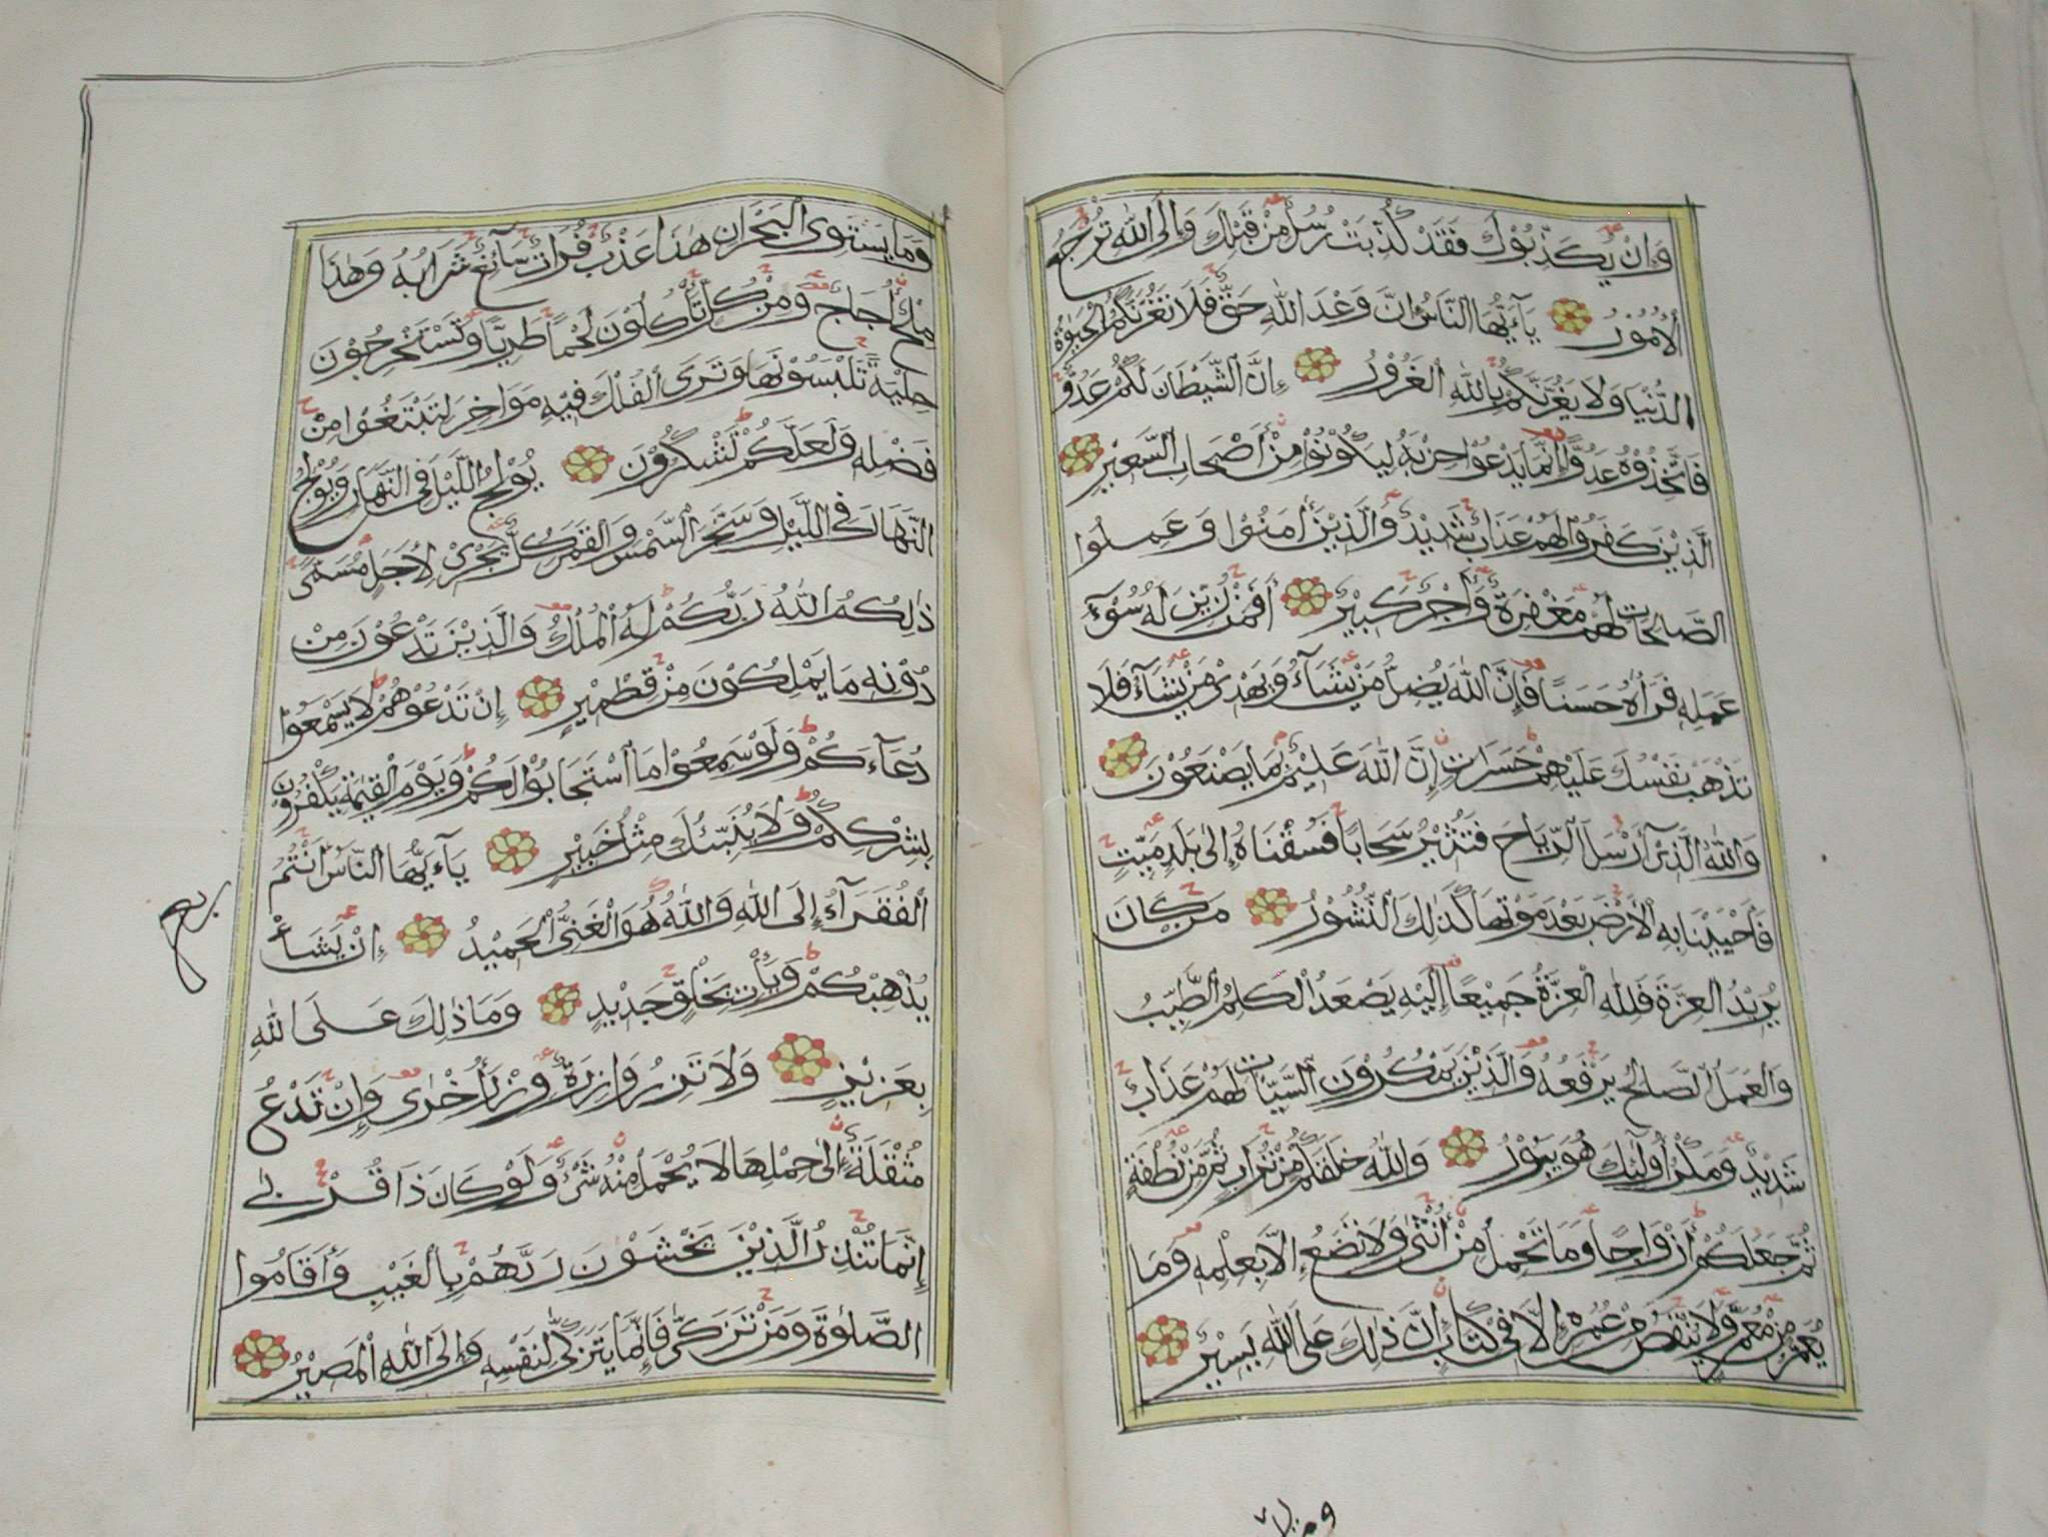 وَاِنْ يُكَذِّبُوْكَ فَقَدْ كُذِّبَتْ رُسُلٌ مِنْ قَبْلِكَ وَاِلَى اللّٰهِ تُرْجَعُ
الْاُمُوْرُ يَآءَيُّهَا النَّاسُ اِنَّ وَعْدَ اللّٰهِ حَقٌّ فَلَا تَغُرَّنَّكُمُ الْحَيٰوةُ
الدُّنْيَا وَلَا يَغُرَّنَّكُمْ بِاللّٰهِ الْغَرُوْرُ اِنَّ الشَّيْطَانَ لَكُمْ عَدُوٌّ
فَاتَّخِذُوْهُ عَدُوًّا اِنَّمَا يَدْعُوْا حِزْبَهُ لِيَكُوْنُوْا مِنْ اَصْحَابِ السَّعِيْرِ
الَّذِيْنَ كَفَرُوْا لَهُمْ عَذَابٌ شَدِيْدٌ وَالَّذِيْنَ اٰمَنُوْا وَعَمِلُوا
الصَّالِحَاتِ لَهُمْ مَغْفِرَةٌ وَاَجْرٌ كَبِيْرٌ اَفَمَنْ زُيِّنَ لَهُ سُوْٓءُ
عَمَلِهِ فَرَاٰهُ حَسَنًا فَاِنَّ اللّٰهَ يُضِلُّ مَنْ يَشَآءُ وَيَهْدِىْ مَنْ يَشَآءُ فَلَا
تَذْهَبْ نَفْسُكَ عَلَيْهِمْ حَسَرَاتٍ اِنَّ اللّٰهَ عَلِيْمٌ بِمَا يَصْنَعُوْنَ
وَاللّٰهُ الَّذِىْٓ اَرْسَلَ الرِّيَاحَ فَتُثِيْرُ سَحَابًا فَسُقْنَاهُ اِلٰى بَلَدٍ مَيِّتٍ
فَاَحْيَيْنَا بِهِ الْاَرْضَ بَعْدَ مَوْتِهَا كَذٰلِكَ النُّشُوْرُ مَنْ كَانَ
يُرِيْدُ الْعِزَّةَ فَلِلّٰهِ الْعِزَّةُ جَمِيْعًا اِلَيْهِ يَصْعَدُ الْكَلِمُ الطَّيِّبُ
وَالْعَمَلُ الصَّالِحُ يَرْفَعُهُ وَالَّذِيْنَ يَمْكُرُوْنَ السَّيِّاٰتِ لَهُمْ عَذَابٌ
شَدِيْدٌ وَمَكْرُ اُولٰٓئِكَ هُوَ يَبُوْرُ وَاللّٰهُ خَلَقَكُمْ مِنْ تُرَابٍ ثُمَّ مِنْ نُطْفَةٍ
ثُمَّ جَعَلَكُمْ اَزْوَاجًا وَمَا تَحْمِلُ مِنْ اُنْثٰى وَلَا تَضَعُ اِلَّا بِعِلْمِهِ وَمَا
يُعَمَّرُ مِنْ مُعَمَّرٍ وَلَا يُنْقَصُ مِنْ عُمُرِهِ اِلَّا فِىْ كِتَابٍ اِنَّ ذٰلِكَ عَلَى اللّٰهِ يَسِيْرٌ
وَمَا يَسْتَوِى الْبَحْرَانِ هٰذَا عَذْبٌ فُرَاتٌ سَآئِغٌ شَرَابُهُ وَهٰذَا
مِلْحٌ اُجَاجٌ وَمِنْ كُلٍّ تَأْكُلُوْنَ لَحْمًا طَرِيًّا وَتَسْتَخْرِجُوْنَ
حِلْيَةً تَلْبَسُوْنَهَا وَتَرَى الْفُلْكَ فِيْهِ مَوَاخِرَ لِتَبْتَغُوْا مِنْ
فَضْلِهِ وَلَعَلَّكُمْ تَشْكُرُوْنَ يُوْلِجُ اللَّيْلَ فِى النَّهَارِ وَيُوْلِجُ
النَّهَارَ فِى اللَّيْلِ وَسَخَّرَ الشَّمْسَ وَالْقَمَرَ كُلٌّ يَجْرِىْ لِاَجَلٍ مُسَمًّى
ذٰلِكُمُ اللّٰهُ رَبُّكُمْ لَهُ الْمُلْكُ وَالَّذِيْنَ تَدْعُوْنَ مِنْ
دُوْنِهِ مَا يَمْلِكُوْنَ مِنْ قِطْمِيْرٍ اِنْ تَدْعُوْهُمْ لَا يَسْمَعُوْا
دُعَآءَكُمْ وَلَوْ سَمِعُوْا مَا اسْتَجَابُوْا لَكُمْ وَيَوْمَ الْقِيٰمَةِ يَكْفُرُوْنَ
بِشِرْكِكُمْ وَلَا يُنَبِّئُكَ مِثْلُ خَبِيْرٍ يَآءَيُّهَا النَّاسُ اَنْتُمُ
الْفُقَرَآءُ اِلَى اللّٰهِ وَاللّٰهُ هُوَ الْغَنِىُّ الْحَمِيْدُ اِنْ يَشَأْ
يُذْهِبْكُمْ وَيَأْتِ بِخَلْقٍ جَدِيْدٍ وَمَا ذٰلِكَ عَلَى اللّٰهِ
بِعَزِيْزٍ وَلَا تَزِرُ وَازِرَةٌ وِزْرَ اُخْرٰى وَاِنْ تَدْعُ
مُثْقَلَةٌ اِلٰى حِمْلِهَا لَا يُحْمَلْ مِنْهُ شَىْءٌ وَلَوْ كَانَ ذَا قُرْبٰى
اِنَّمَا تُنْذِرُ الَّذِيْنَ يَخْشَوْنَ رَبَّهُمْ بِالْغَيْبِ وَاَقَامُوا
الصَّلٰوةَ وَمَنْ تَزَكّٰى فَاِنَّمَا يَتَزَكّٰى لِنَفْسِهِ وَاِلَى اللّٰهِ الْمَصِيْرُ